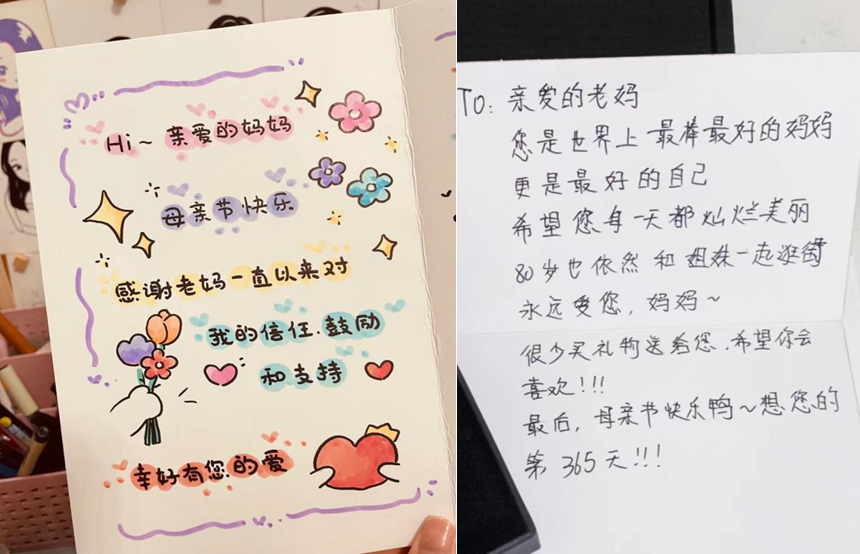 Hi~ 亲爱的妈妈
母亲节快乐
感谢老妈一直以来对
我的信任.鼓励
和支持
幸好有您的爱
TO: 亲爱的老妈
您是世界上最棒最好的妈妈
更是最好的自己
希望您每一天都灿烂美丽
80岁也依然和姐妹一起逛街
永远爱您,妈妈~
很少买礼物送给您,希望你会
喜欢!!!
最后,母亲节快乐鸭~想您的
第365天!!!